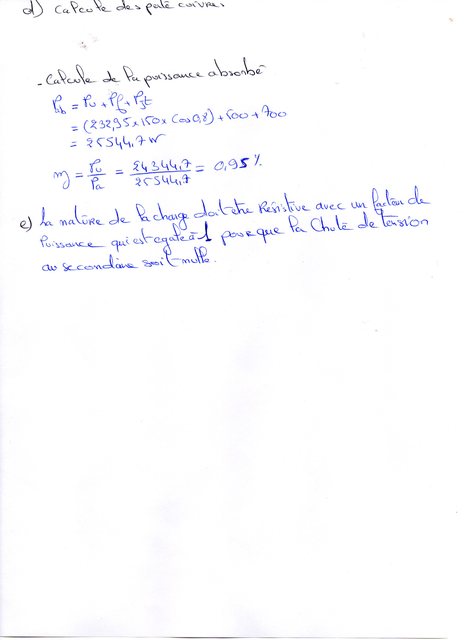 d) Calcule des perte cuivres
- Calcule de la puissance absorbé
Pab = Pu + Pf + Pjt
= (232,95 x 150 x Cos 0,8) + 500 + 700
= 25544,7 W
η = Pu/Pa = 24344,7/25544,7 = 0,95 %
e) La nature de la charge doit être Résistive avec un facteur de
Puissance qui est egale à 1 pour que la Chute de tension
au secondaire soit nulle.